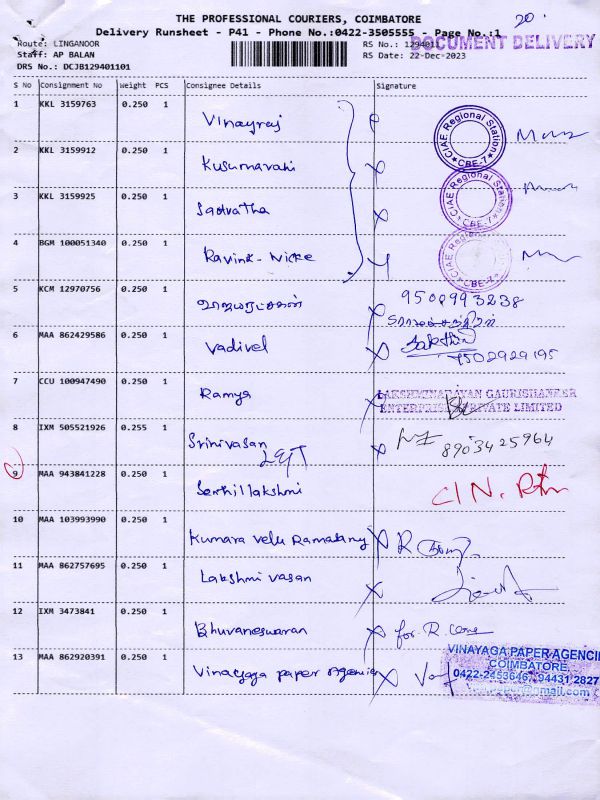 THE PROFESSIONAL COURIERS, COIMBATORE
20.
Delivery Runsheet - P41 - Phone No.:0422-3505555 - Page No.:1
Route: LINGANOOR
RS No.: 129401
DOCUMENT DELIVERY
Staff: AP BALAN
RS Date: 22-Dec-2023
DRS No.: DCJB129401101
S No Consignment No Weight PCS Consignee Details Signature
1 KKL 3159763 0.250 1 Vinayraj
CIAE Regional Station CBE-7
2 KKL 3159912 0.250 1 Kusumavathi
3 KKL 3159925 0.250 1
CIAE Regional Station CBE-7
4 BGM 100051340 0.250 1
CIAE Regional Station CBE-7
5 KCM 12970756 0.250 1 9508993238
6 MAA 862429586 0.250 1 Vadivel Sakthi
7502929195
7 CCU 100947490 0.250 1 Ramya
LAKSHMINARAYAN GAURISHANKER
ENTERPRISES PRIVATE LIMITED
8 IXM 505521926 0.255 1 Srinivasan 8903425964
Left
9 MAA 943841228 0.250 1 Senthillakshmi C/N. Rtn
10 MAA 103993990 0.250 1 Kumara Velu
11 MAA 862757695 0.250 1 Lakshmi vasan
12 IXM 3473841 0.250 1 Bhuvaneswaran for R.
13 MAA 862920391 0.250 1 Vinayaga paper agencies
VINAYAGA PAPER AGENCI
COIMBATORE
0422-2453646, 94431 2827
@gmail.com